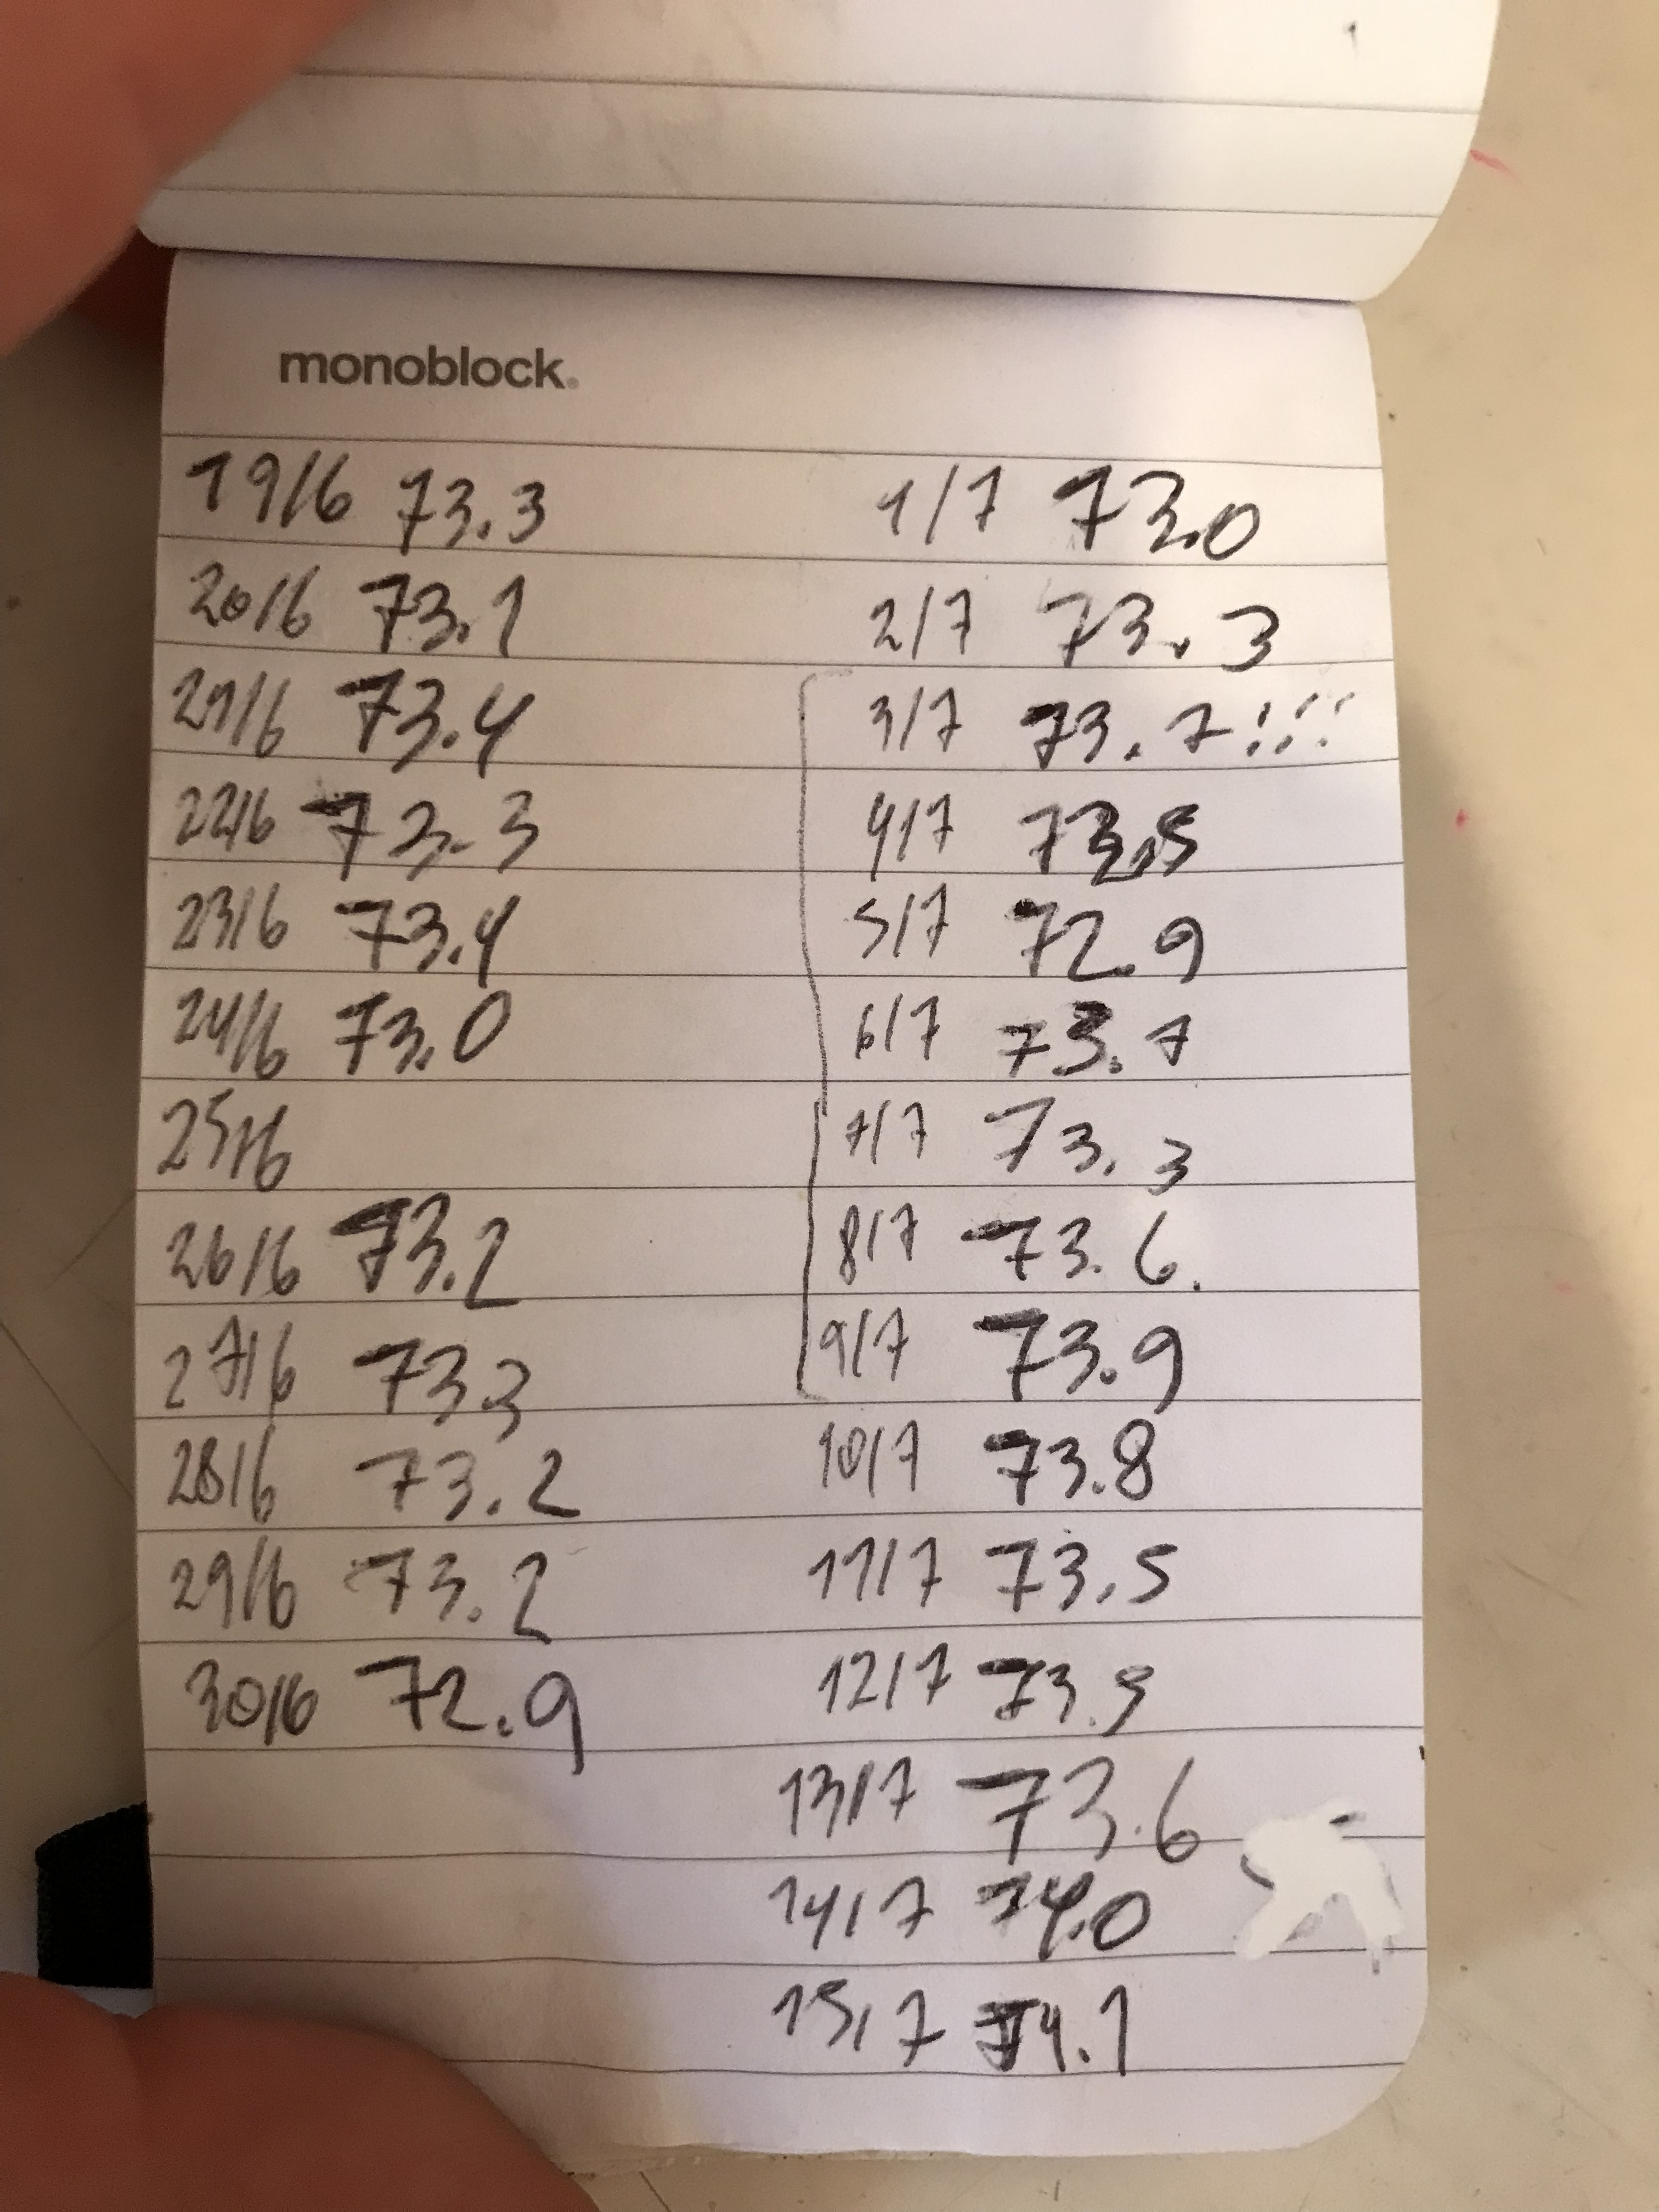 monoblock.
19/6 73.3
20/6 73.1
21/6 73.4
22/6 73.3
23/6 73.4
24/6 73.0
25/6
26/6 73.2
27/6 73.3
28/6 73.2
29/6 73.2
30/6 72.9
1/7 73.0
2/7 73.3
3/7 73.7!!!
4/7 73.5
5/7 72.9
6/7
7/7 73.3
8/7 73.6.
9/7 73.9
10/7 73.8
11/7 73.5
12/7
13/7 73.6
14/7 74.0
15/7 74.1